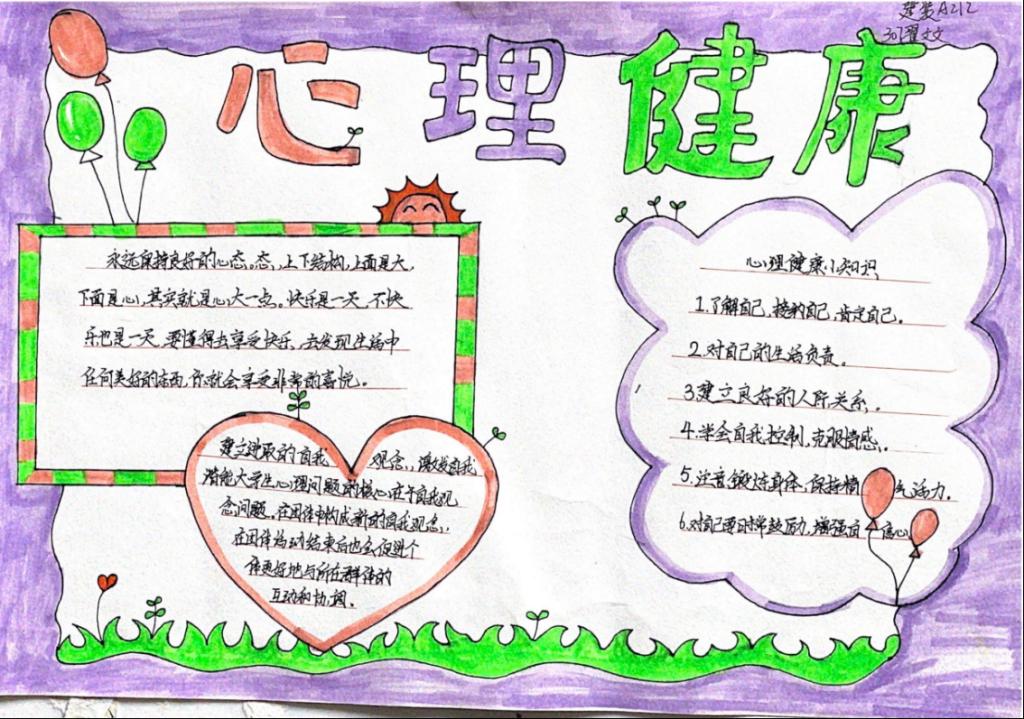 建装A212
心理健康
永远保持良好的心态,态,上下结构,上面是大,
下面是心,其实就是心大一点。快乐是一天,不快
乐也是一天,要懂得去享受快乐,去发现生活中
任何美好的东西,你就会享受非常的喜悦。
建立进取的自我观念,激发自我
潜能大学生心理问题的核心在于自我观
念问题。在团体中构成新的自我观念,
在团体活动结束后也会促进个
体更好地与所在群体的
互动和协调。
心理健康小知识
1.了解自己,接纳自己,肯定自己。
2.对自己的生活负责。
3.建立良好的人际关系。
4.学会自我控制,克服情感。
5.注意锻炼身体,保持精 气活力。
6.对自己要日常鼓励,增强自 信心